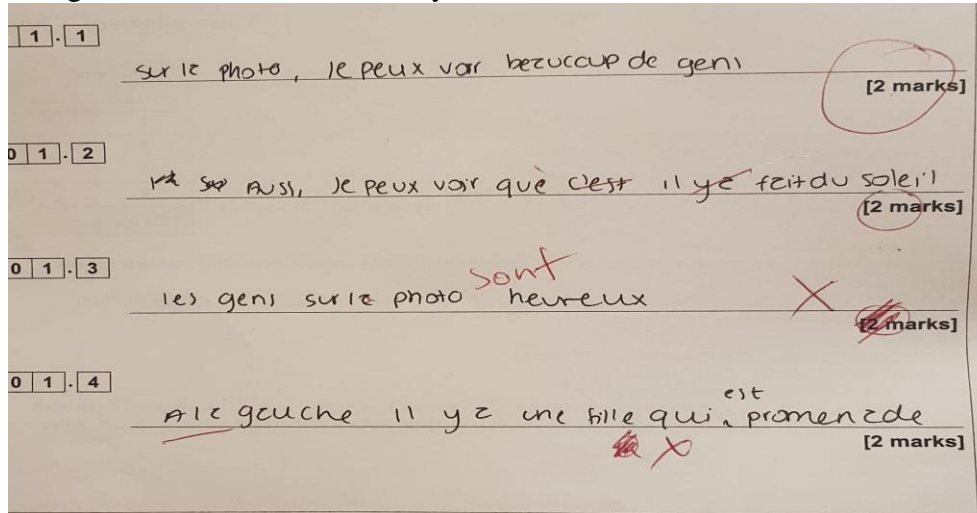 1.1
sur le photo, je peux voir beaucoup de gens
[2 marks]
0 1.2
Aussi, je peux voir que c'est il y a fait du soleil
[2 marks]
0 1.3
sont
les gens sur la photo heureux
[2 marks]
0 1.4
est
A la gauche il y a une fille qui promenade
[2 marks]